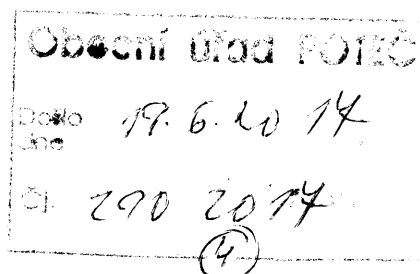 Obecní úřad POTEČ
Došlo
dne 19. 6. 2017
Čj. 210 2017
4